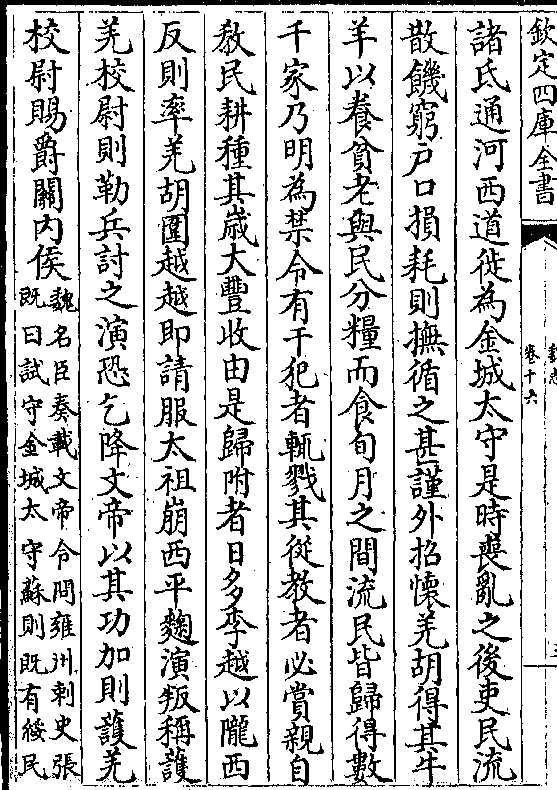 欽定四庫全書
魏志
卷十六
諸氐通河西道徙為金城太守是時喪亂之後吏民流
散饑窮戸口損耗則撫循之甚謹外招懷羌胡得其牛
羊以養貧老與民分糧而食旬月之間流民皆歸得數
千家乃明為禁令有干犯者輒戮其從教者必賞親自
教民耕種其歲大豐收由是歸附者日多李越以隴西
反則率羌胡圍越越即請服太祖崩西平麴演叛稱護
羌校尉則勒兵討之演恐乞降文帝以其功加則護羌
校尉賜爵關内侯
魏名臣奏載文帝令問雍州刺史張
既曰試守金城太守蘇則既有綏民